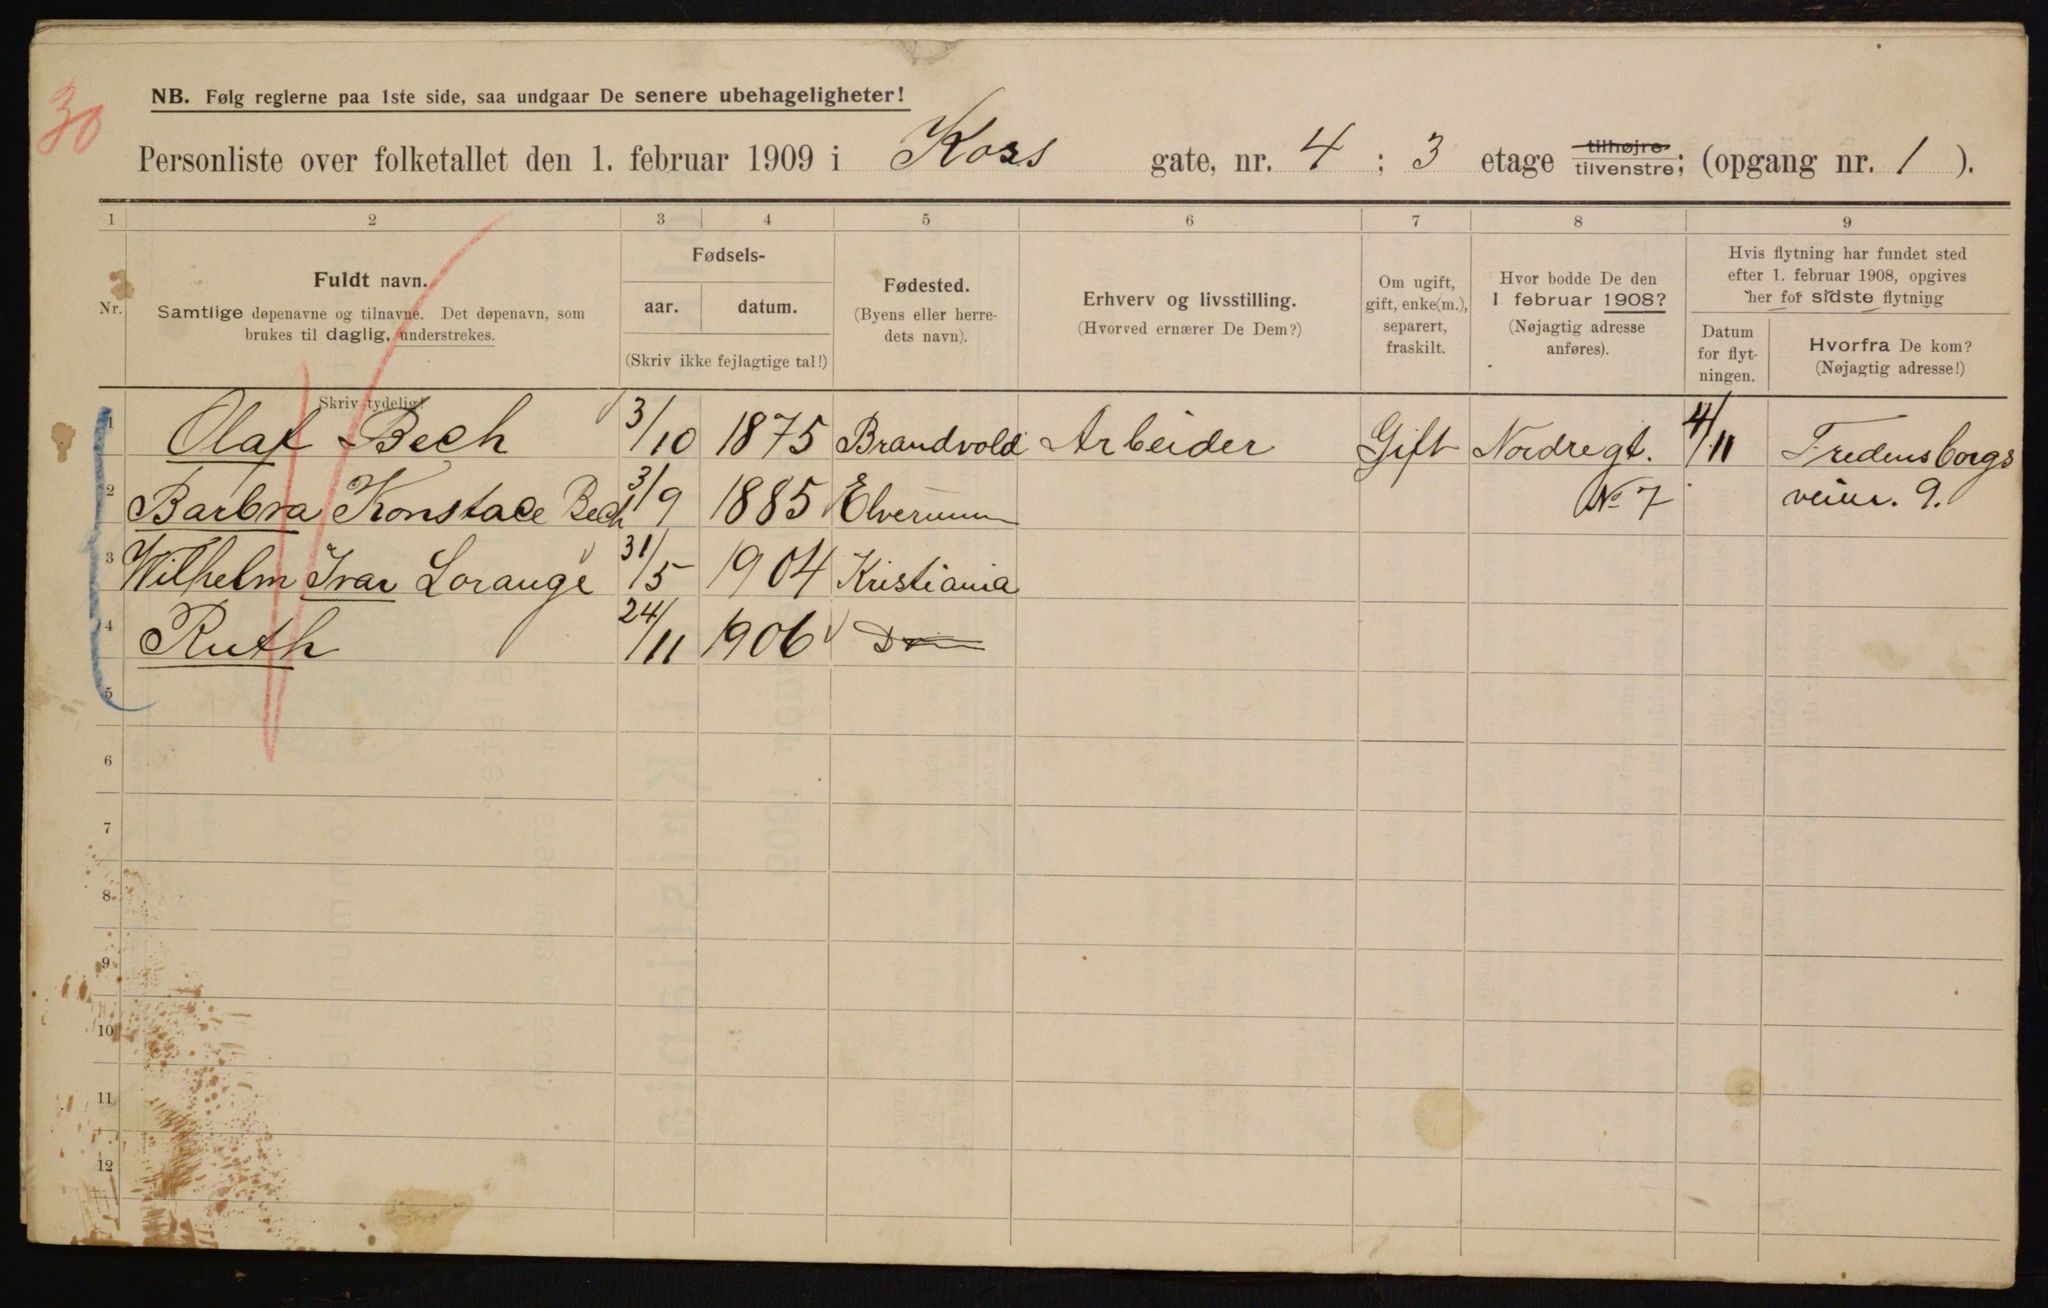 30
NB. Følg reglerne paa 1ste side, saa undgaar De senere ubehageligheter!
Personliste over folketallet den 1. februar 1909 i Kors gate, nr. 4 ; 3 etage tilhøjre tilvenstre; (opgang nr. 1 ).
1 2 3 4 5 6 7 8 9
Nr.
Fuldt navn.
Samtlige døpenavne og tilnavne. Det døpenavn, som
brukes til daglig, understrekes.
Skriv tydelig!
Fødsels-
aar. datum.
(Skriv ikke fejlagtige tal!)
Fødested.
(Byens eller herre-
dets navn).
Erhverv og livsstilling.
(Hvorved ernærer De Dem?)
Om ugift,
gift, enke(m.),
separert,
fraskilt.
Hvor bodde De den
1 februar 1908?
(Nøjagtig adresse
anføres).
Hvis flytning har fundet sted
efter 1. februar 1908, opgives
her for sidste flytning
Datum
for flyt-
ningen.
Hvorfra De kom?
(Nøjagtig adresse!)
1 Olaf Bech 3/10 1875 Brandvold Arbeider Gift Nordregt. 4/11 Fredensborgs
2 Barbra Konstace Bech 3/9 1885 Elverum No 7 veien. 9.
3 Wilhelm Ivar Lorange 31/5 1904 Kristiania
4 Ruth 24/11 1906 Do
5
6
7
8
9
10
11
12